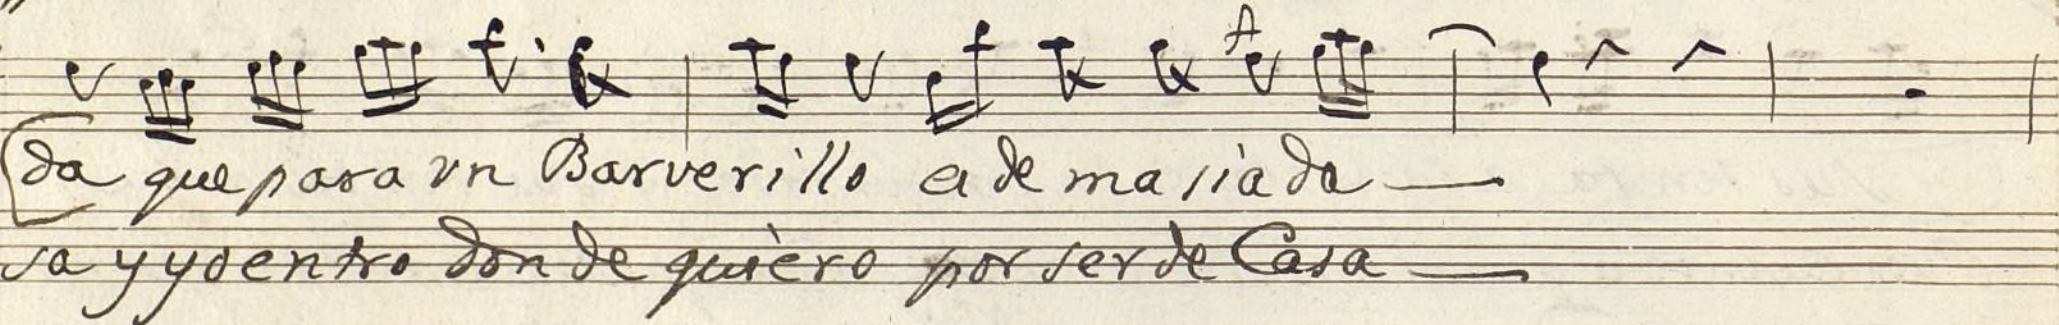 da que para vn Barverillo es demasiada
sa y yo entro donde quièro por ser de Casa